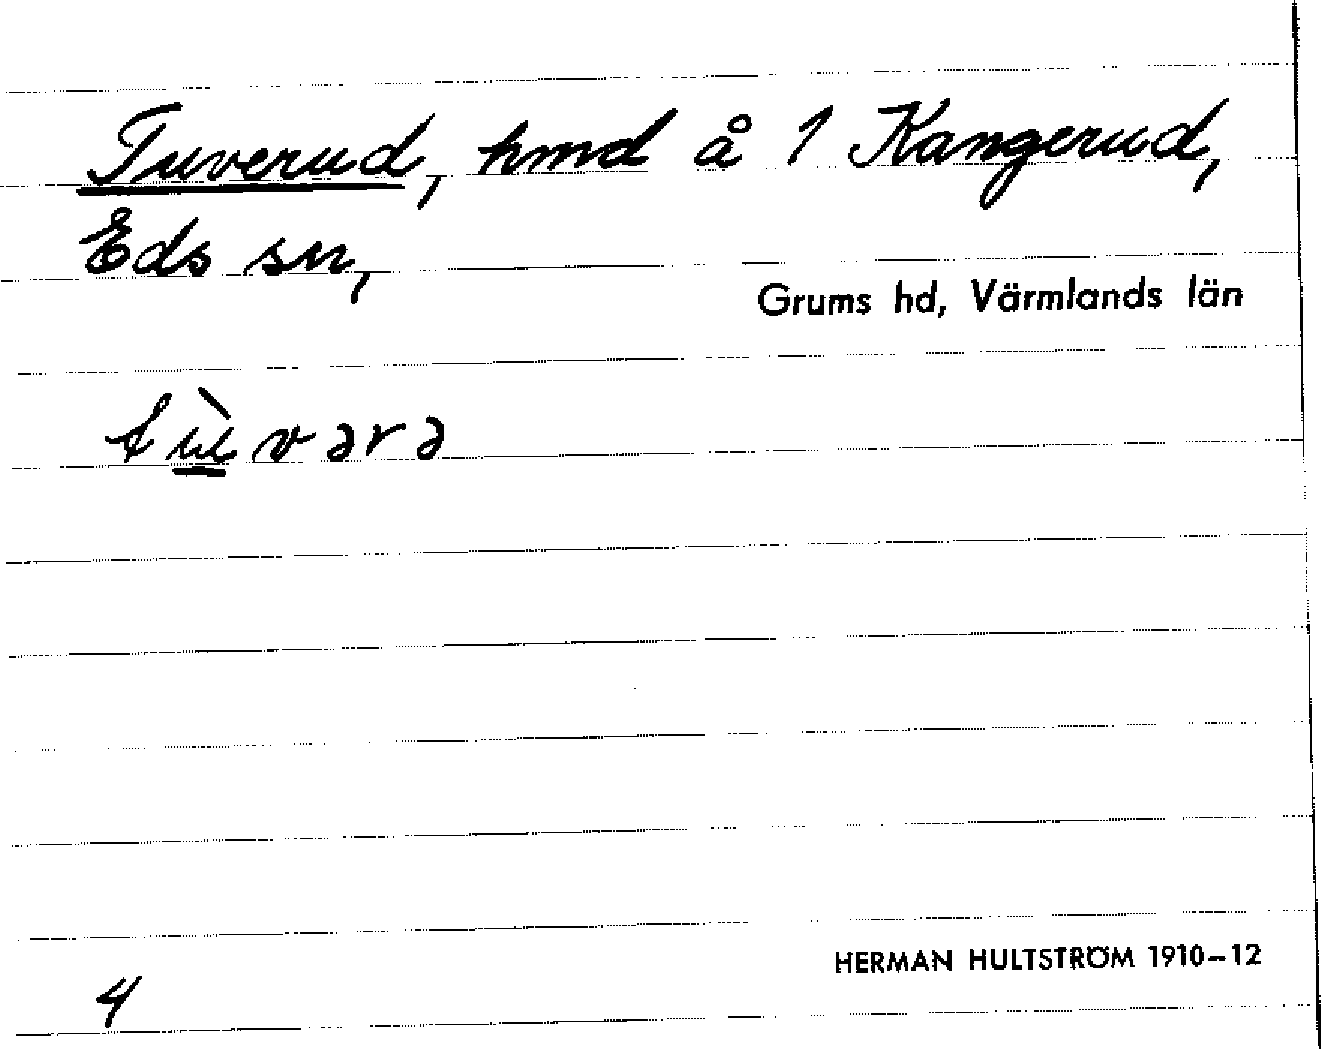 Tuverud, hmd å 1 Kangerud,
Eds sn,
Grums hd, Värmlands län
tùvərə
4
HERMAN HULTSTRÖM 1910–12